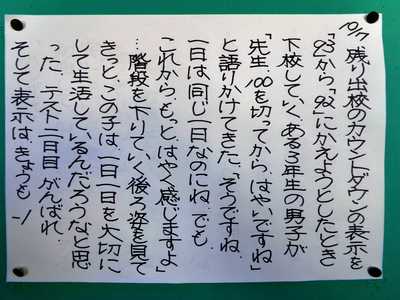 10/17 残り出校のカウントダウンの表示を
「93」から「92」にかえようとしたとき
下校していくある3年生の男子が
「先生、100を切ってから、はやいですね」
と語りかけてきた。「そうですね、
一日は同じ一日なのにね。でも
これから、もっと、はやく感じますよ」
…階段を下りていく後ろ姿を見て
きっと、この子は、一日一日を大切に
して生活しているんだろうなと思
った。テスト二日目がんばれ、
そして表示は、きょうも -1